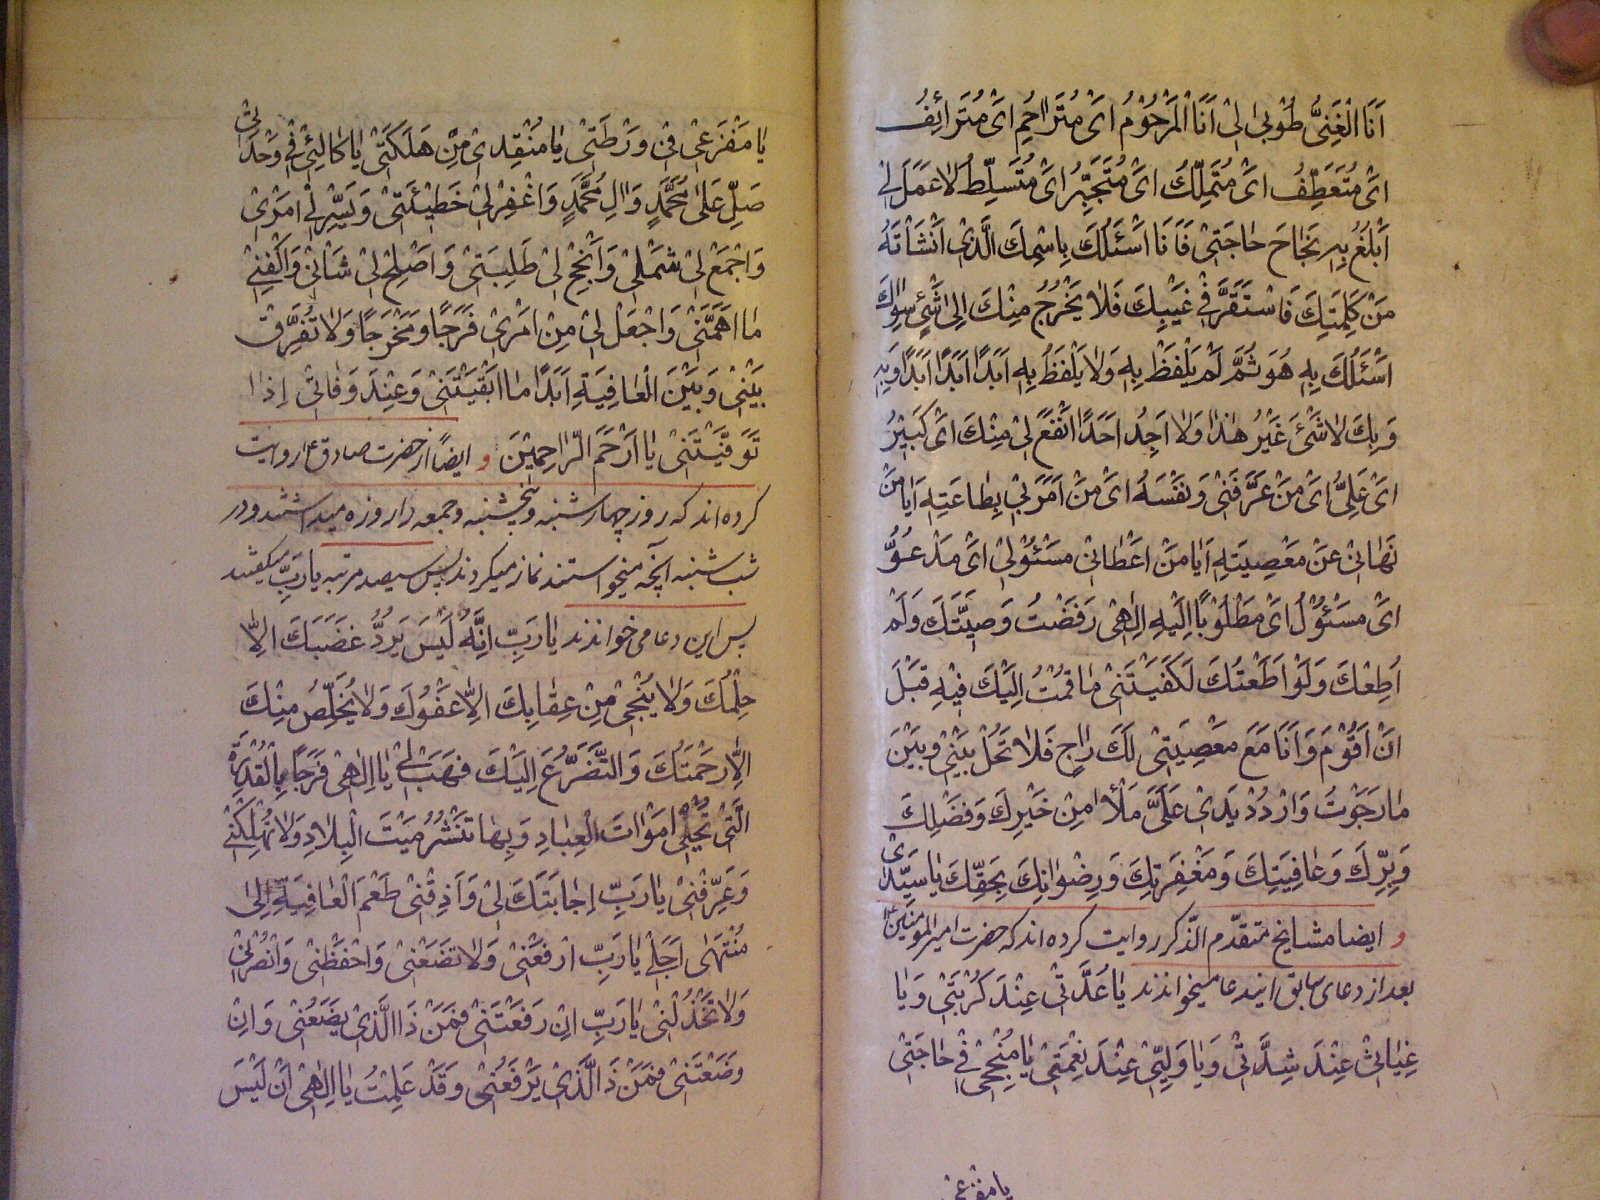 اَنَا الْغَنِىُّ طُوْبىٰ لِىْ اَنَا الْمَرْحُوْمُ اَىْ مُتَرَاحِمِ اَىْ مُتَرَائِفُ
اَىْ مُتَعَطِّفُ اَىْ مُتَمَلِّكُ اَىْ مُتَجَبِّرُ اَىْ مُتَسَلِّطُ لَا عَمَلَ لِىْ
اَبْلُغُ بِهِ نَجَاحَ حَاجَتِىْ فَاَنَا اَسْئَلُكَ بِاسْمِكَ الَّذِىْ اَنْشَأْتَهُ
مَنْ كَلِمَتِكَ فَاسْتَقَرَّ فِىْ غَيْبِكَ فَلَا يَخْرُجُ مِنْكَ اِلىٰ شَىْءٍ سِوَاكَ
اَسْئَلُكَ بِهِ هُوَ ثُمَّ لَمْ يَلْفَظْ بِهِ وَلَا يَلْفَظُ بِهِ اَبَدًا اَبَدًا اَبَدًا وَبِهِ
وَبِكَ لَا شَىْءَ غَيْرُ هٰذَا وَلَا اَجِدُ اَحَدًا اَنْفَعَ لِىْ مِنْكَ اَىْ كَبِيْرُ
اَىْ عَلِىُّ اَىْ مَنْ عَرَّفَنِىْ وَنَفْسَهُ اَىْ مَنْ اَمَرَنِىْ بِطَاعَتِهِ اَيَا مَنْ
نَهَانِىْ عَنْ مَعْصِيَتِهِ اَيَا مَنْ اَعْطَانِىْ مَسْئُوْلِىْ اَىْ مَدْعُوُّ
اَىْ مَسْئُوْلُ اَىْ مَطْلُوْبًا اِلَيْهِ اِلٰهِىْ رَفَضْتُ وَصِيَّتَكَ وَلَمْ
اُطِعْكَ وَلَوْ اَطَعْتُكَ لَكَفَيْتَنِىْ مَا قُمْتُ اِلَيْكَ فِيْهِ قَبْلَ
اَنْ اَقُوْمَ وَاَنَا مَعَ مَعْصِيَتِىْ لَكَ رَاجٍ فَلَا تَحُلْ بَيْنِىْ وَبَيْنَ
مَا رَجَوْتُ وَارْدُدْ يَدِىْ عَلَىَّ مَلْأً مِنْ خَيْرِكَ وَفَضْلِكَ
وَبِرِّكَ وَعَافِيَتِكَ وَمَغْفِرَتِكَ وَرِضْوَانِكَ بِحَقِّكَ يَا سَيِّدِىْ
و ايضا مشايخ متقدّم الذّكر روايت كرده اند كه حضرت امير المؤمنين ع
بعد از دعاى سابق اينه دعا ميخواندند يَا عُدَّتِىْ عِنْدَ كُرْبَتِىْ وَيَا
غِيَاثِىْ عِنْدَ شِدَّتِىْ وَيَا وَلِيِّىْ عِنْدَ نِعْمَتِىْ يَا مُنْجِحِىْ فِىْ حَاجَتِىْ
يا مفزعى
يَا مَفْزَعِىْ فِىْ وَرْطَتِىْ يَا مُنْقِذِىْ مِنْ هَلَكَتِىْ يَا كَالِئِىْ فِىْ وَحْدَتِىْ
صَلِّ عَلىٰ مُحَمَّدٍ وَاٰلِ مُحَمَّدٍ وَاغْفِرْ لِىْ خَطِيْئَتِىْ وَيَسِّرْ لِىْ اَمْرِىْ
وَاجْمَعْ لِىْ شَمْلِىْ وَاَنْجِحْ لِىْ طَلِبَتِىْ وَاَصْلِحْ لِىْ شَانِىْ وَاكْفِنِىْ
مَا اَهَمَّنِىْ وَاجْعَلْ لِىْ مِنْ اَمْرِىْ فَرَجًا وَمَخْرَجًا وَلَا تُفَرِّقْ
بَيْنِىْ وَبَيْنَ الْعَافِيَةِ اَبَدًا مَا اَبْقَيْتَنِىْ وَعِنْدَ وَفَاتِىْ اِذَا
تَوَفَّيْتَنِىْ يَا اَرْحَمَ الرَّاحِمِيْنَ و ايضاً از حضرت صادق ع روايت
كرده اند كه روز چهارشنبه و پنجشنبه و جمعه را روزه ميداشتند و در
شب شنبه آنچه ميخواستند نماز ميكردند پس سيصد مرتبه يا ربِّ ميگفتند
پس اين دعا مى خواندند يَا رَبِّ اِنَّهُ لَيْسَ يَرُدُّ غَضَبَكَ اِلَّا
حِلْمُكَ وَلَا يُنْجِىْ مِنْ عِقَابِكَ اِلَّا عَفْوُكَ وَلَا يُخَلِّصُ مِنْكَ
اِلَّا رَحْمَتُكَ وَالتَّضَرُّعَ اِلَيْكَ فَهَبْ لِىْ يَا اِلٰهِىْ فَرَجًا بِالْقُدْرَةِ
الَّتِىْ تُحْيِىْ اَمْوَاتَ الْعِبَادِ وَبِهَا تَنْشُرُ مَيْتَ الْبِلَادِ وَلَا تُهْلِكْنِىْ
وَعَرِّفْنِىْ يَا رَبِّ اِجَابَتَكَ لِىْ وَاَذِقْنِىْ طَعْمَ الْعَافِيَةِ اِلىٰ
مُنْتَهىٰ اَجَلِىْ يَا رَبِّ ارْفَعْنِىْ وَلَا تَضَعْنِىْ وَاحْفَظْنِىْ وَانْصُرْنِىْ
وَلَا تَخْذُلْنِىْ يَا رَبِّ اِنْ رَفَعْتَنِىْ فَمَنْ ذَا الَّذِىْ يَضَعُنِىْ وَاِنْ
وَضَعْتَنِىْ فَمَنْ ذَا الَّذِىْ يَرْفَعُنِىْ وَقَدْ عَلِمْتُ يَا اِلٰهِىْ اَنْ لَيْسَ